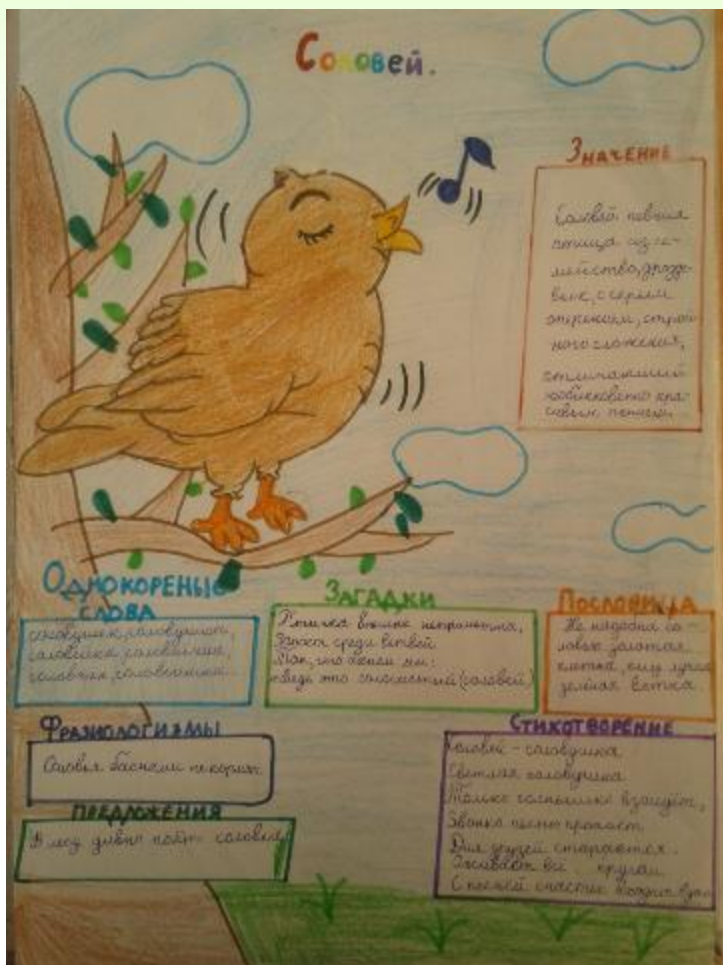 Соловей.
Значение
Соловей певчая
птица из се-
мейства дроздо-
вых, с серым
оперением, строй-
ного сложения,
отличающийся
необыкновенно кра-
сивым пением.
Однокореные
слова
соловушек, соловушкой,
Загадки
Птичка вполне неприметна,
среди ветвей
ведь это голосистый (соловей)
Пословица
Не надобна со-
ловью золотая
клетка, ему лучше
зелёная ветка.
Фразиологизмы
Соловья баснями не кормят
Предложения
В лесу дивно поёт соловей
Стихотворение
Соловей - соловушка
Светлая головушка
Только солнышко взойдёт,
Звонко песню пропоёт
Для друзей старается
Оживает всё кругом
С песней счастье входит в дом